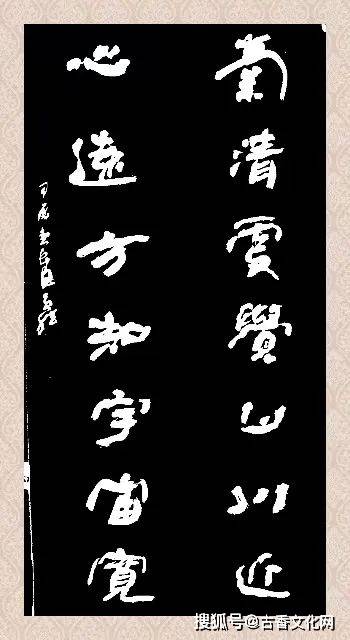 氣清更覺山川近
心遠方知宇宙寬
甲戌
搜狐号@古香文化网